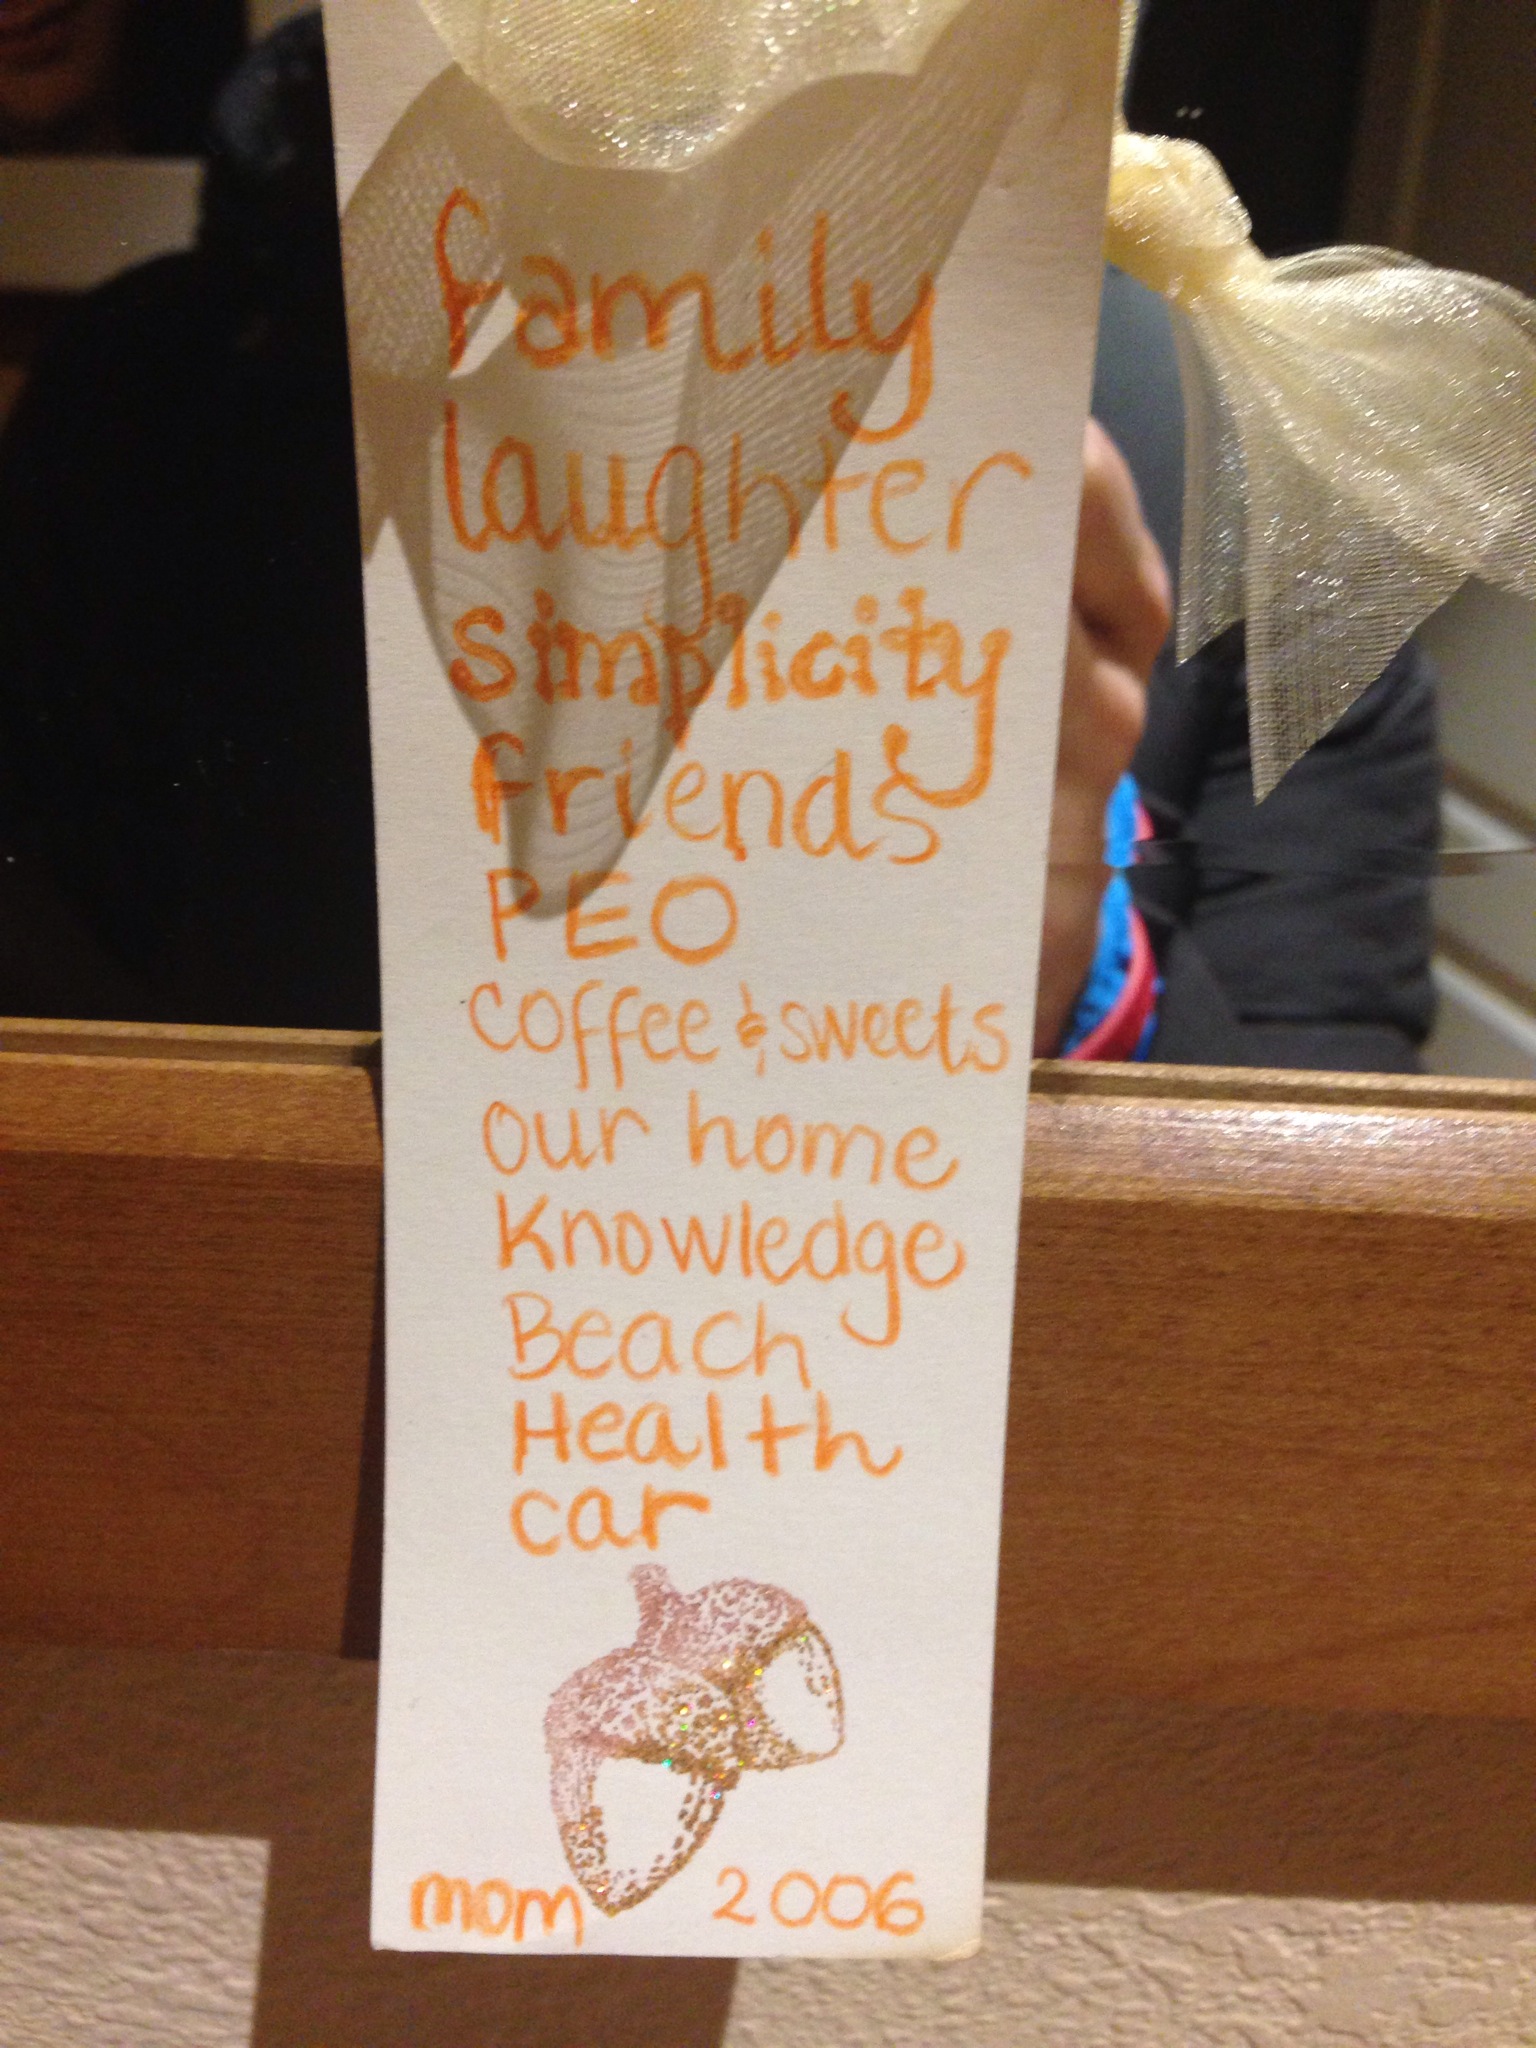 family
laughter
simplicity
friends
PEO
Coffee & sweets
our home
Knowledge
Beach
Health
car
mom 2006